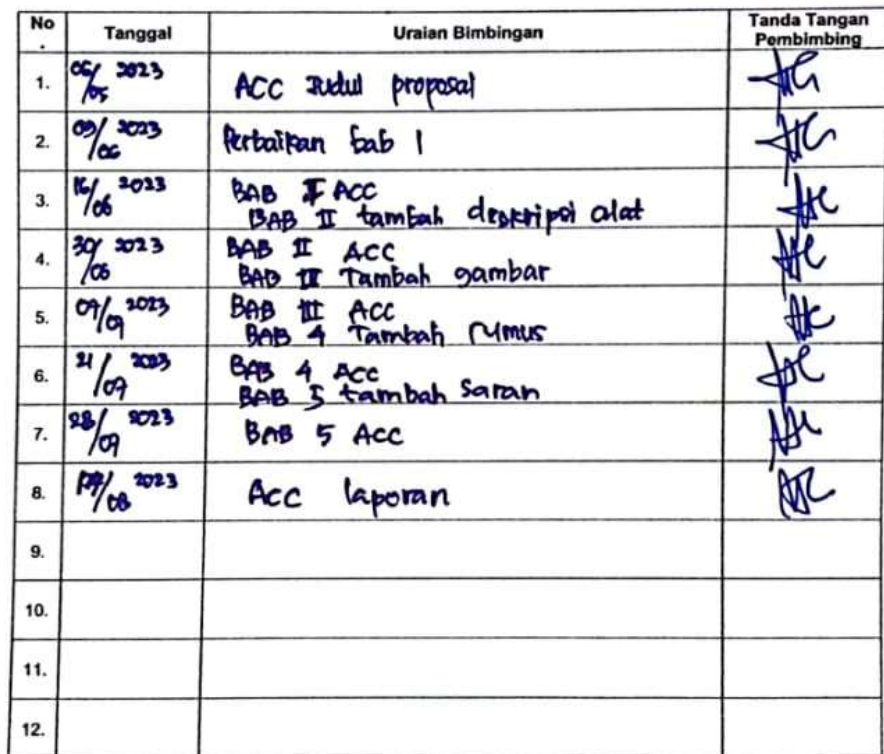 No. Tanggal Uraian Bimbingan Tanda Tangan Pembimbing
1. 06/05 2023 ACC Judul proposal
2. 09/06 2023 Perbaikan bab 1
3. 16/06 2023 BAB I ACC
BAB II tambah deskripsi alat
4. 30/06 2023 BAB II ACC
BAB III Tambah gambar
5. 07/07 2023 BAB III ACC
BAB 4 Tambah rumus
6. 21/07 2023 BAB 4 ACC
BAB 5 tambah saran
7. 28/07 2023 BAB 5 ACC
8. /08 2023 ACC laporan
9.
10.
11.
12.